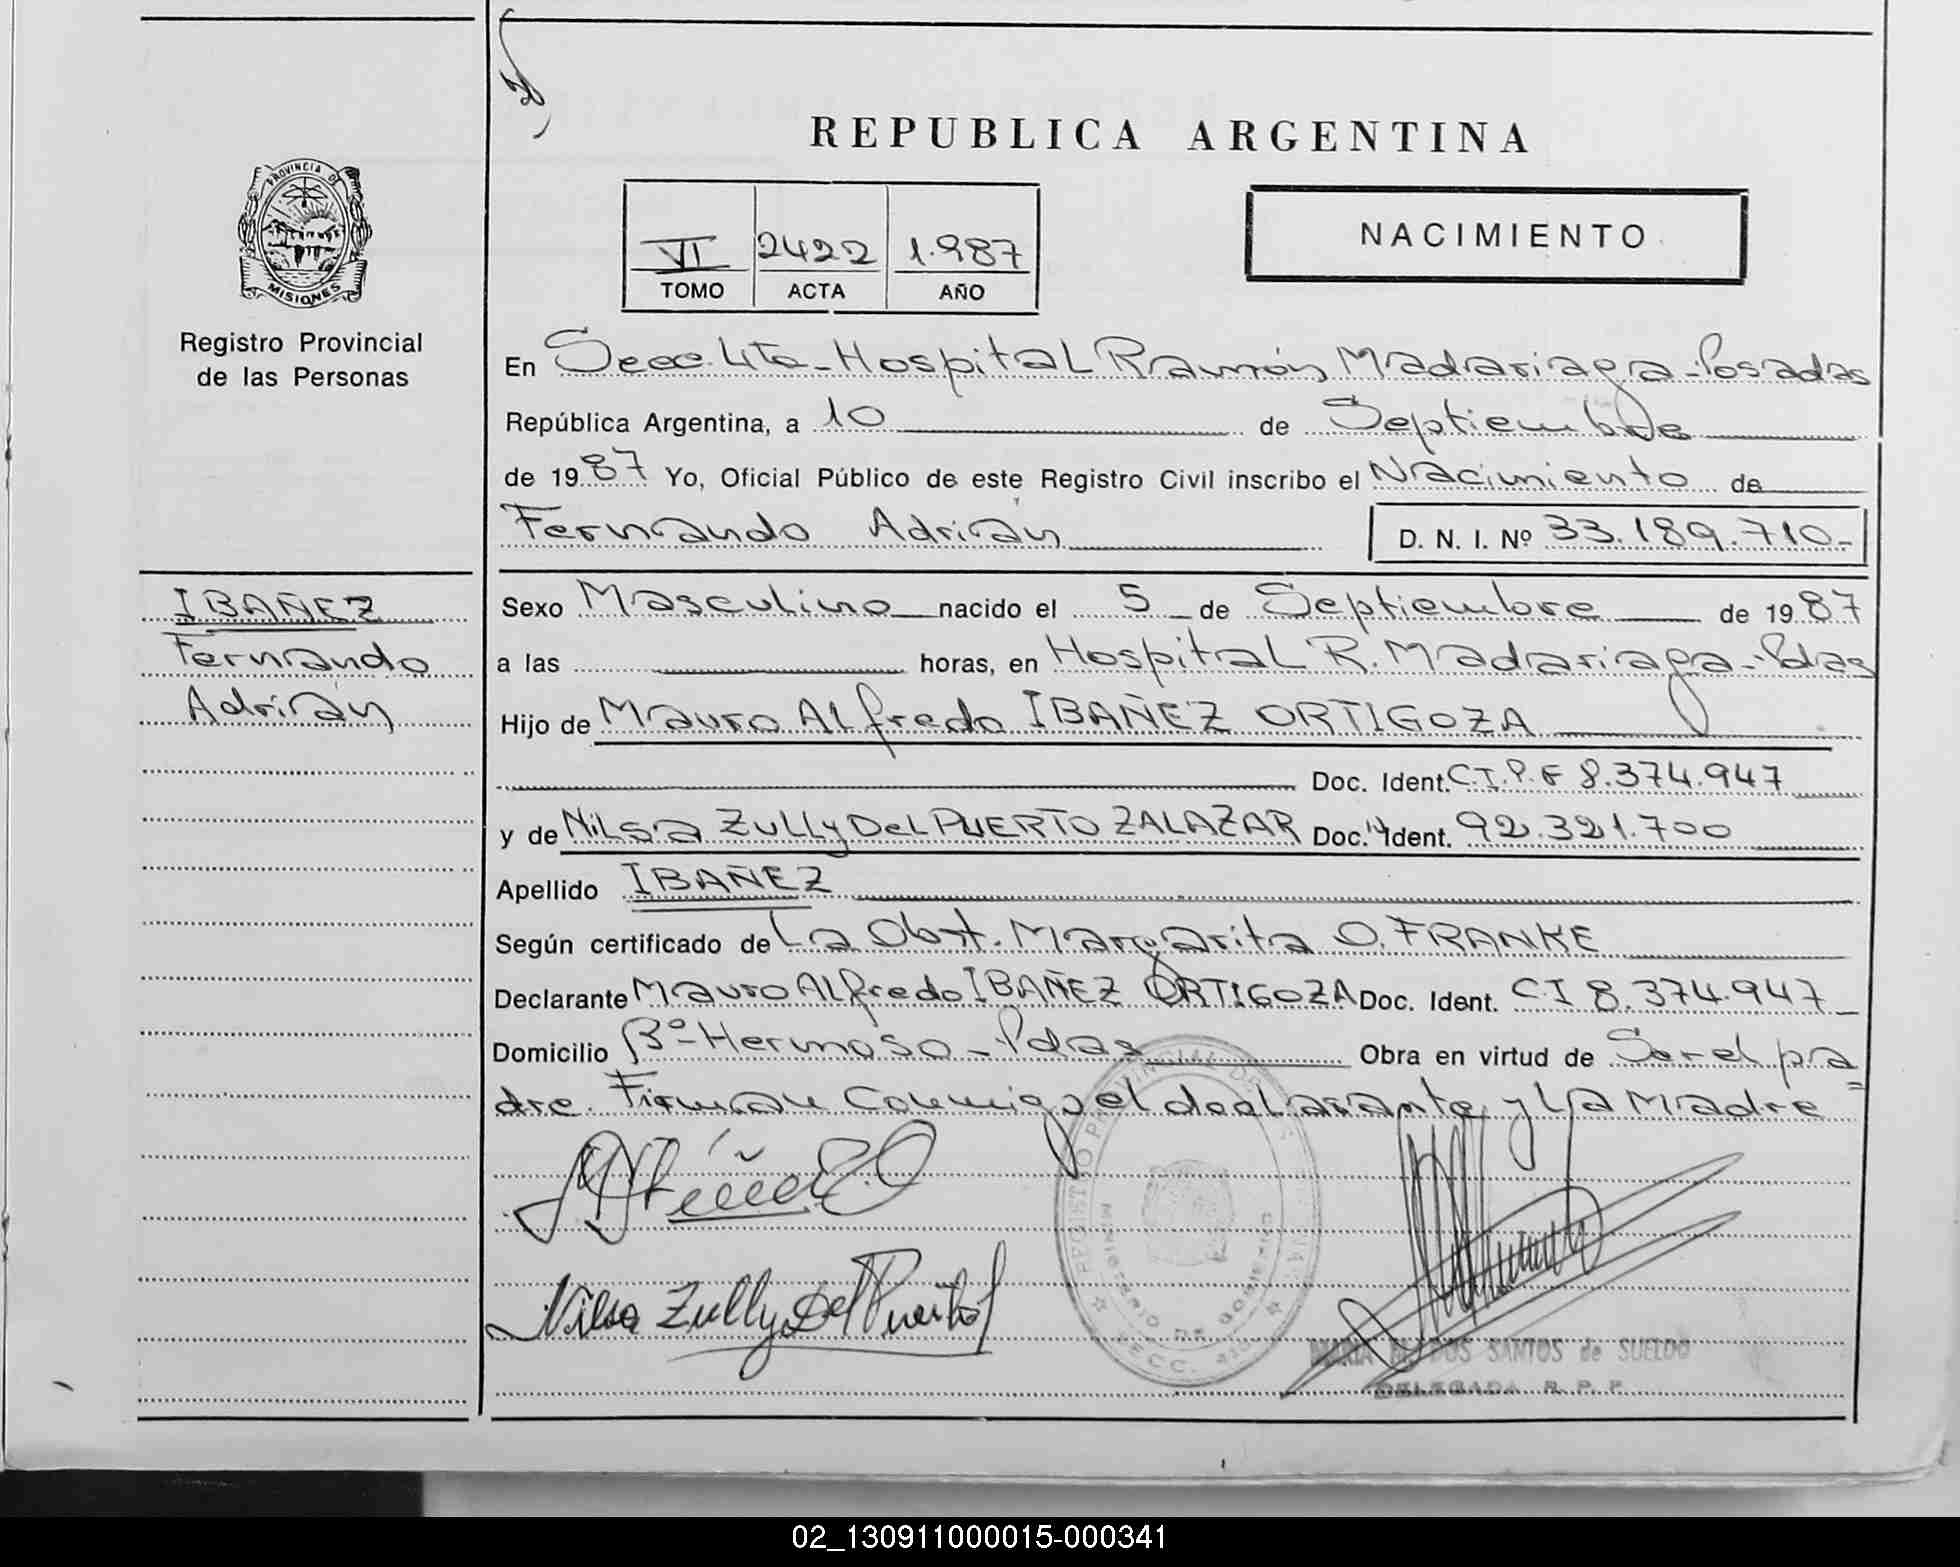 REPUBLICA ARGENTINA
PROVINCIA DE
MISIONES
Registro Provincial
de las Personas
VI 2422 1.987
TOMO ACTA AÑO
NACIMIENTO
En Secc. 4ta - Hospital Ramón Madariaga - Posadas
República Argentina, a 10 de Septiembre
de 1987 Yo, Oficial Público de este Registro Civil inscribo el Nacimiento de
Fernando Adrián D. N. I. Nº 33.189.710-
IBAÑEZ
Fernando
Adrián
Sexo Masculino nacido el 5 de Septiembre de 1987
a las horas, en Hospital R. Madariaga - Pdas
Hijo de Mauro Alfredo IBAÑEZ ORTIGOZA
Doc. Ident. C.I.P.F 8.374.947
y de Nilsa Zully Del PUERTO ZALAZAR Doc. Ident. 92.321.700
Apellido IBAÑEZ
Según certificado de La Obst. Margarita O. FRANKE
Declarante Mauro Alfredo IBAÑEZ ORTIGOZA Doc. Ident. C.I 8.374.947
Domicilio Bº Hermoso - Pdas Obra en virtud de Ser el pa=
dre. Firman Conmigo el declarante y La Madre
Nilsa Zully Del Puerto
REGISTRO PROVINCIAL DE LAS PERSONAS
MINISTERIO DE GOBIERNO
SECC. 4ta
MARIA DOS SANTOS de SUELDO
DELEGADA R. P. P.
02_130911000015-000341